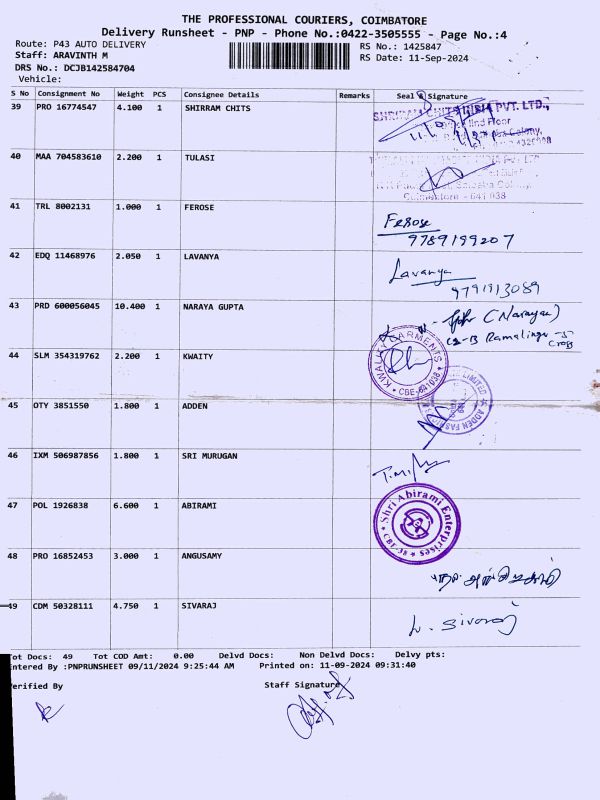 THE PROFESSIONAL COURIERS, COIMBATORE
Delivery Runsheet - PNP - Phone No.:0422-3505555 - Page No.:4
Route: P43 AUTO DELIVERY RS No.: 1425847
Staff: ARAVINTH M RS Date: 11-Sep-2024
DRS No.: DCJB142584704
Vehicle:
S No Consignment No Weight PCS Consignee Details Remarks Seal & Signature
39 PRO 16774547 4.100 1 SHIRRAM CHITS
SHRIRAM CHITS INDIA PVT. LTD.,
IInd Floor
Colony,
40 MAA 704583610 2.200 1 TULASI
Saibaba Colony,
Coimbatore - 641 038
41 TRL 8002131 1.000 1 FEROSE
Ferose
9789199207
42 EDQ 11468976 2.050 1 LAVANYA
Lavanya
9791913089
43 PRD 600056045 10.400 1 NARAYA GUPTA
(Narayan)
Ramalinga
Cross
44 SLM 354319762 2.200 1 KWAITY
KWALITY GARMENTS
CBE-641038
45 OTY 3851550 1.800 1 ADDEN
ADDEN FASHIONS LIMITED
46 IXM 506987856 1.800 1 SRI MURUGAN
47 POL 1926838 6.600 1 ABIRAMI
Shri Abirami Enterprises
CBE-38
48 PRO 16852453 3.000 1 ANGUSAMY
49 CDM 50328111 4.750 1 SIVARAJ
Sivaraj
Tot Docs: 49 Tot COD Amt: 0.00 Delvd Docs: Non Delvd Docs: Delvy pts:
ntered By :PNPRUNSHEET 09/11/2024 9:25:44 AM Printed on: 11-09-2024 09:31:40
erified By Staff Signature